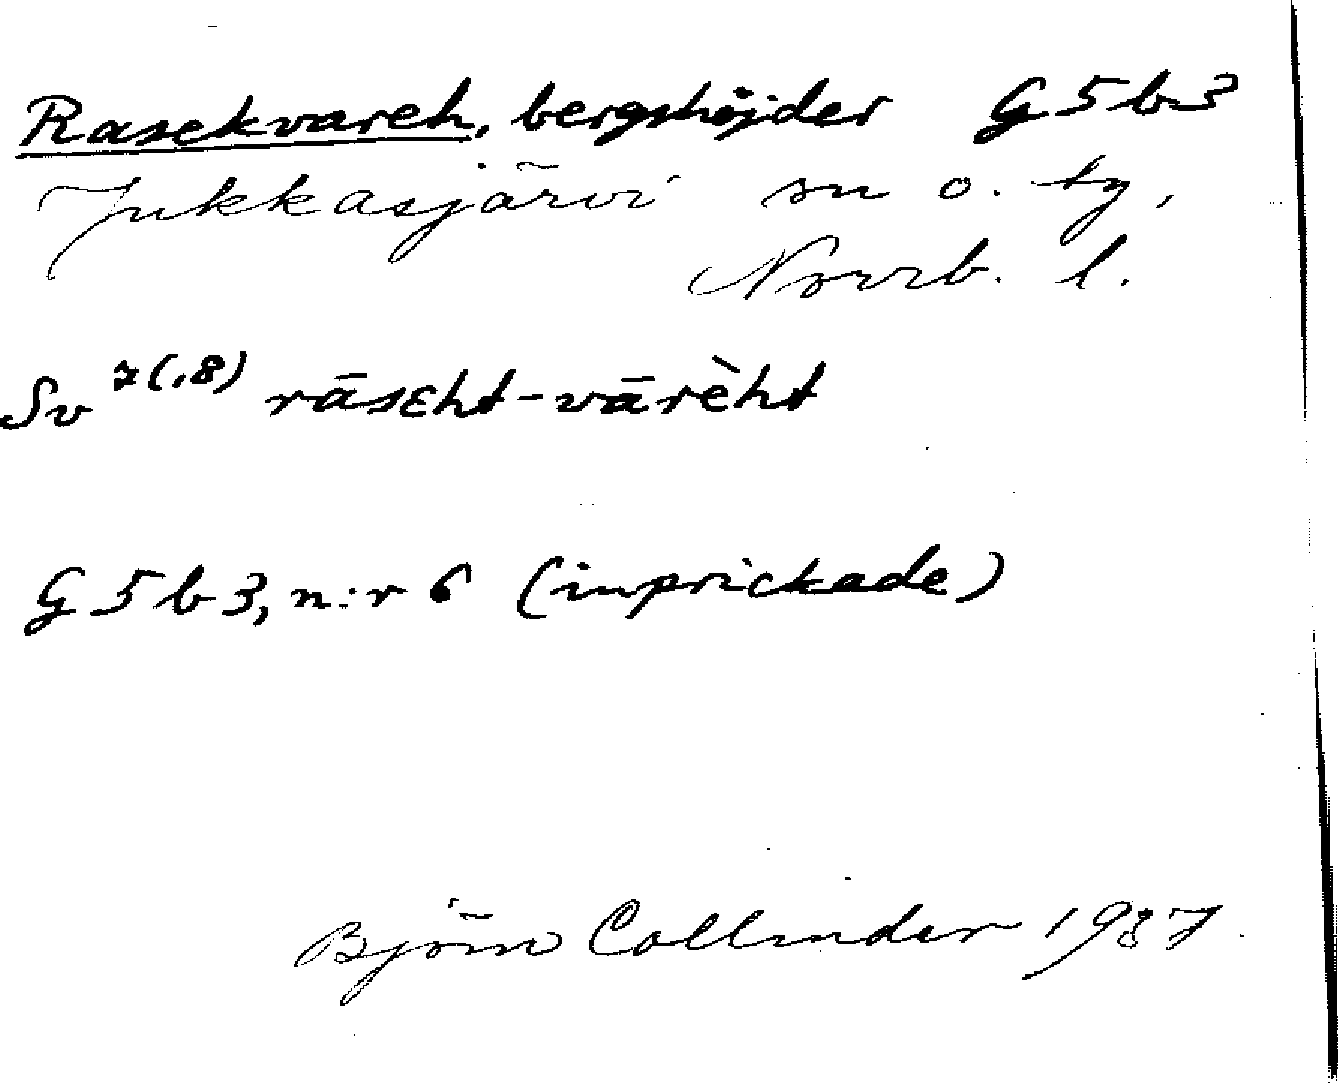 Rasekvareh, bergshöjder G5b3
Jukkasjärvi sn o. tg,
Norrb. l.
Sv 7(,8) rāsεht-vārὲht
G5b3, n:r 6 (inprickade)
Björn Collinder 1937